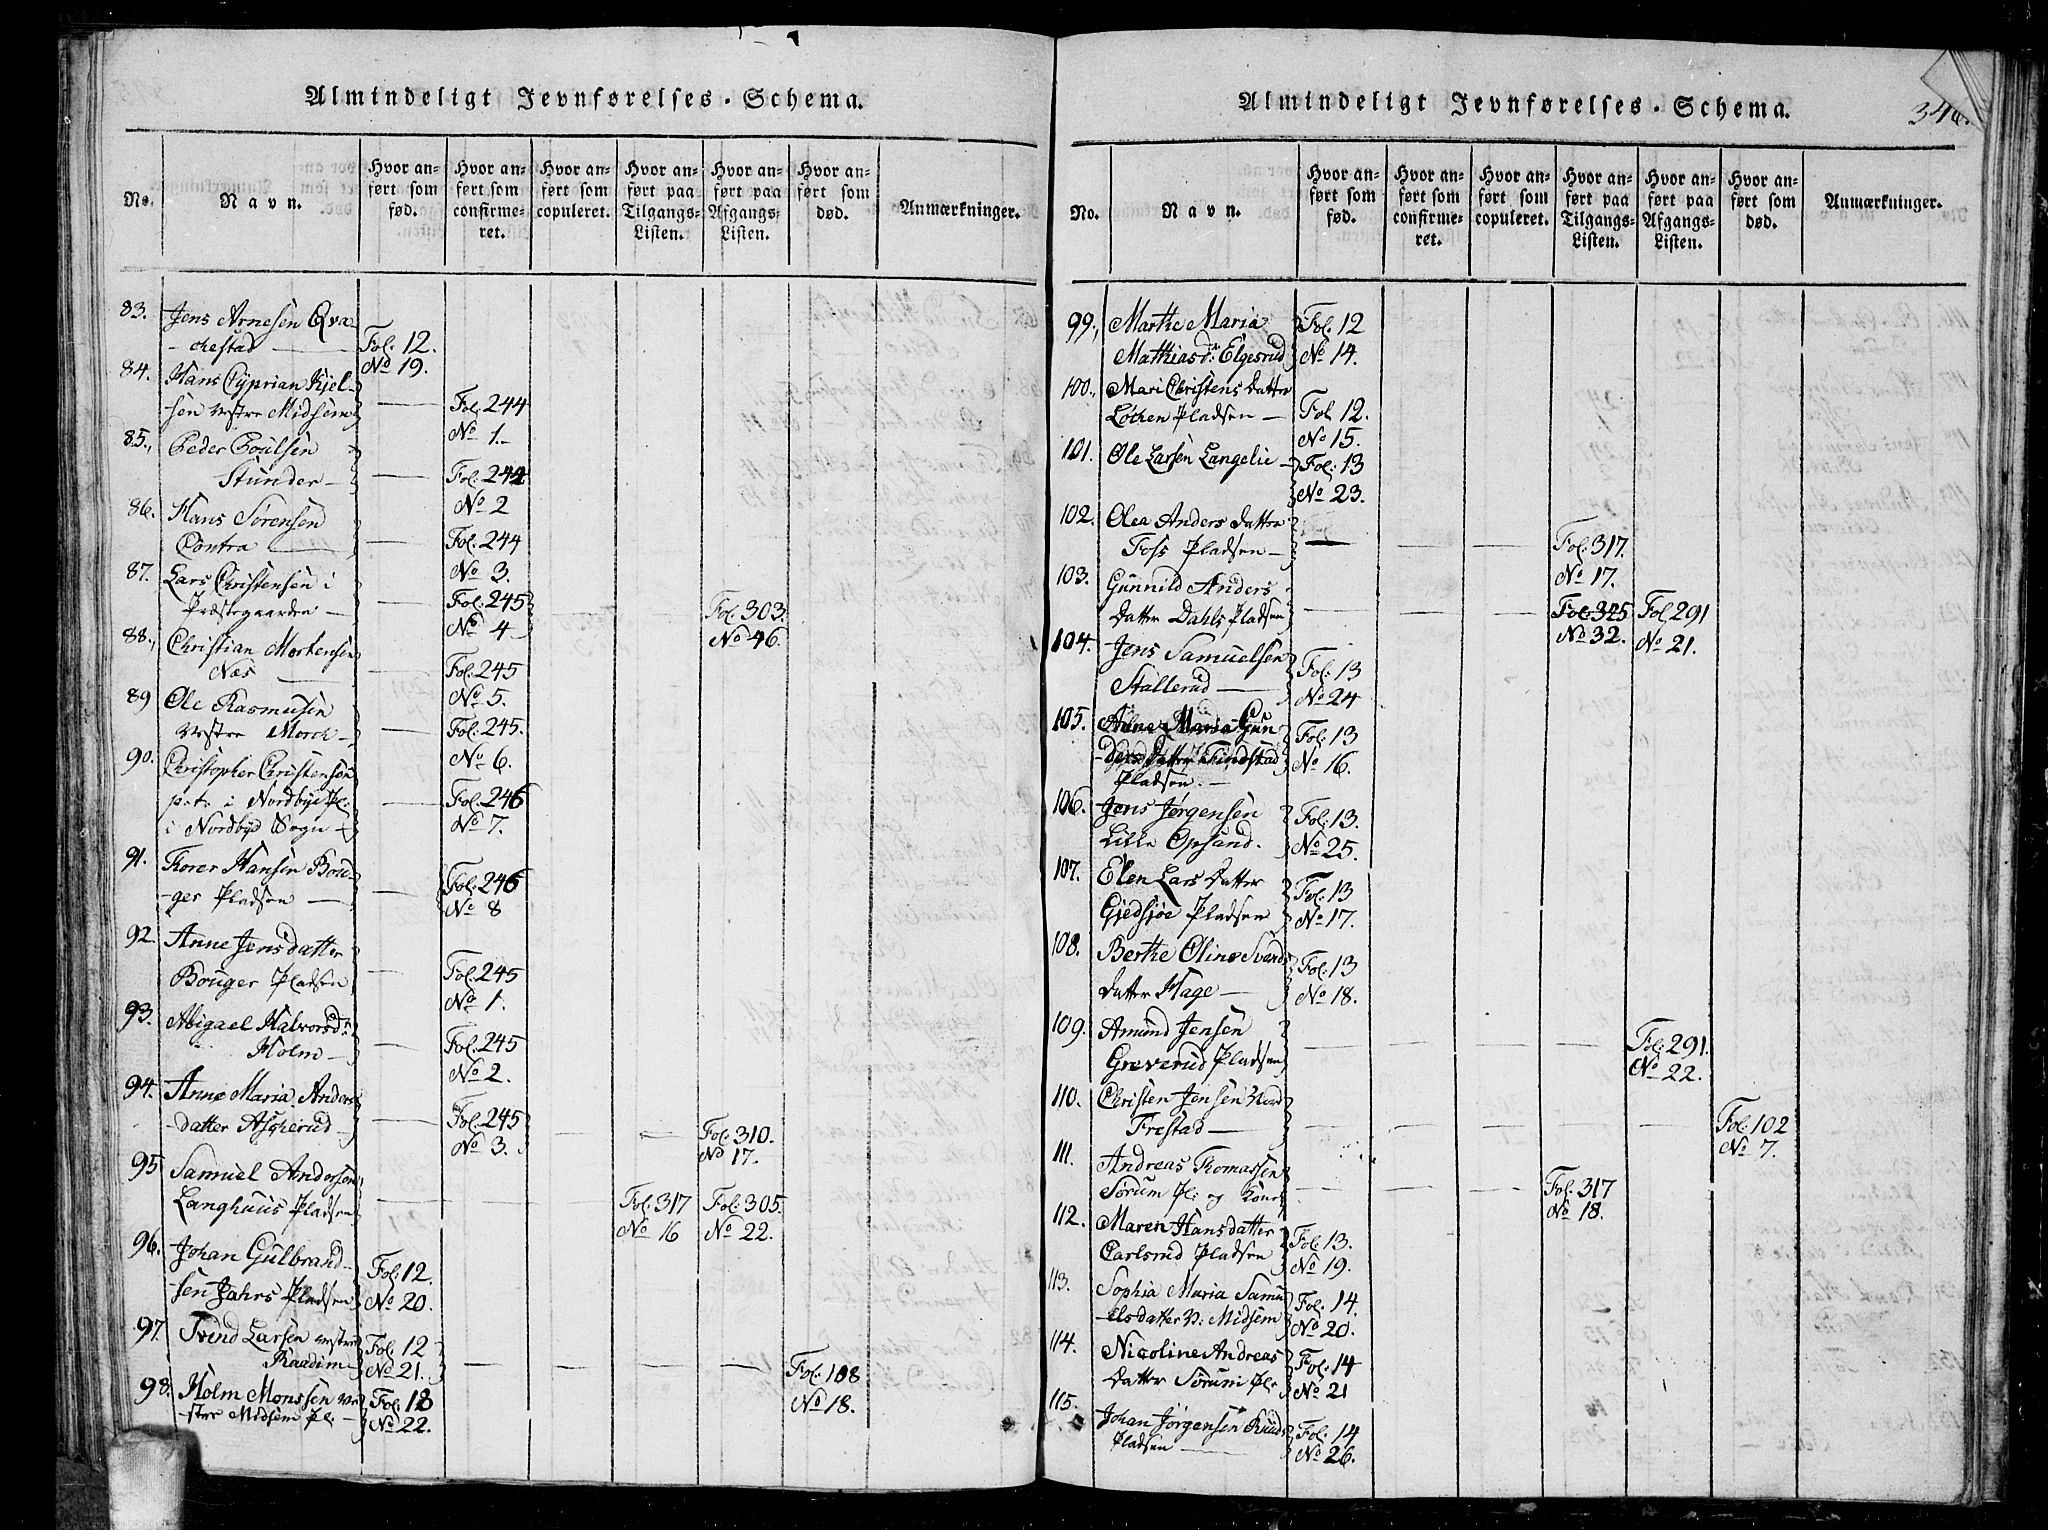 Almindeligt Jevnførelses-Schema.
No.
Navn.
Hvor anført som fød.
Hvor anført som confirmeret.
Hvor anført som copuleret.
Hvor anført paa Tilgangs-Listen.
Hvor anført paa Afgangs-Listen.
Hvor anført som død.
Anmærkninger.
83. Jens Arnesen Qva-
-chestad — Fol: 12.
No 19.
84. Hans Cyprian Kjel-
sen vestre Midsem — Fol: 244
No 1.
85. Peder Poulsen
Stunder — Fol: 244
No 2
86. Hans Sørensen
Contra — Fol: 244
No 3.
87. Lars Christensen i
Præstegaarden — Fol: 245 Fol: 303.
No 4 No 46.
88. Christian Mortensen
Næs — Fol: 245
No 5.
89 Ole Rasmusen
vestre Morch — Fol: 245.
No 6.
90. Christopher Christensen
p.t. i Nordbye Pl: — Fol: 246
i Nordbye Sogn No 7.
91. Thorer Hansen Bou-
-ger Pladsen — Fol: 246
No 8
92. Anne Jensdatter
Bouger Pladsen — Fol: 245
No 1.
93. Abigael Halvorsdr:
Holm — Fol: 245
No 2.
94. Anne Maria Anders
-datter Ascherud — Fol: 245 — — Fol: 310.
No 3. No 17.
95 Samuel Andersen
Langhuus Pladsen — — — Fol: 317 Fol: 305.
No 16 No 22.
96. Johan Gulbrand-
-sen Jahrs Pladsen Fol: 12.
No 20.
97. Svend Larsen vestre Fol: 12
Raadim — No 21. — — — — Fol: 108
No 18.
98. Holm Monssen ve Fol: 12
-stre Midsem Pl: — No 22.
Almindeligt Jevnførelses-Schema.
34
No.
Navn.
Hvor anført som fød.
Hvor anført som confirmeret.
Hvor anført som copuleret.
Hvor anført paa Tilgangs-Listen.
Hvor anført paa Afgangs-Listen.
Hvor anført som død.
Anmærkninger.
99. Marthe Maria Fol: 12
Mathiasdr: Elgesrud No 14.
100. Mari Christens Datter
Løchen Pladsen — Fol: 12.
No 15.
101. Ole Larsen Langelie — Fol: 13
No 23.
102. Olea Anders Datter
Foss Pladsen — — — — Fol: 317.
No 17.
103. Gunnild Anders
Datter Dahls Pladsen — — — Fol: 325 Fol: 291
No 32. No 21.
104. Jens Samuelsen
Stallerud — Fol: 13
No 24
105. Anne Maria Gun
-ders Datter Findstad Fol: 13
Pladsen. — No 16.
106. Jens Jørgensen
Lille Opsand. Fol: 13.
No 25.
107. Elen Lars Datter
Gjedsjøe Pladsen Fol: 13
No 17.
108. Berthe Oline Svends
Datter Hage — Fol: 13
No 18.
109. Amund Jensen
Greverud Pladsen — — — — Fol: 291.
No 22.
110. Christen Jensen Nord
Frestad — — — — — — Fol: 102
No 7.
111. Andreas Thomassen
Sørum Pl: og Kone — — — Fol: 317
No 18.
112. Maren Hansdatter
Carlsrud Pladsen Fol: 13.
No 19.
113. Sophia Maria Samu
-elsdatter V: Midsem Fol: 14.
No 20.
114. Nicoline Andreas
Datter Sørum Pl: Fol: 14
No 21
115. Johan Jørgensen Ruuds Fol: 14
Pladsen — No 26.